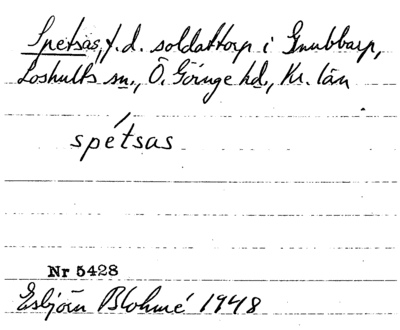 Spetsas, f.d. soldattorp i Gnubbarp,
Loshults sn., Ö. Göinge hd., Kr. län
spétsas
Nr 5428
Esbjörn Blohmé 1948